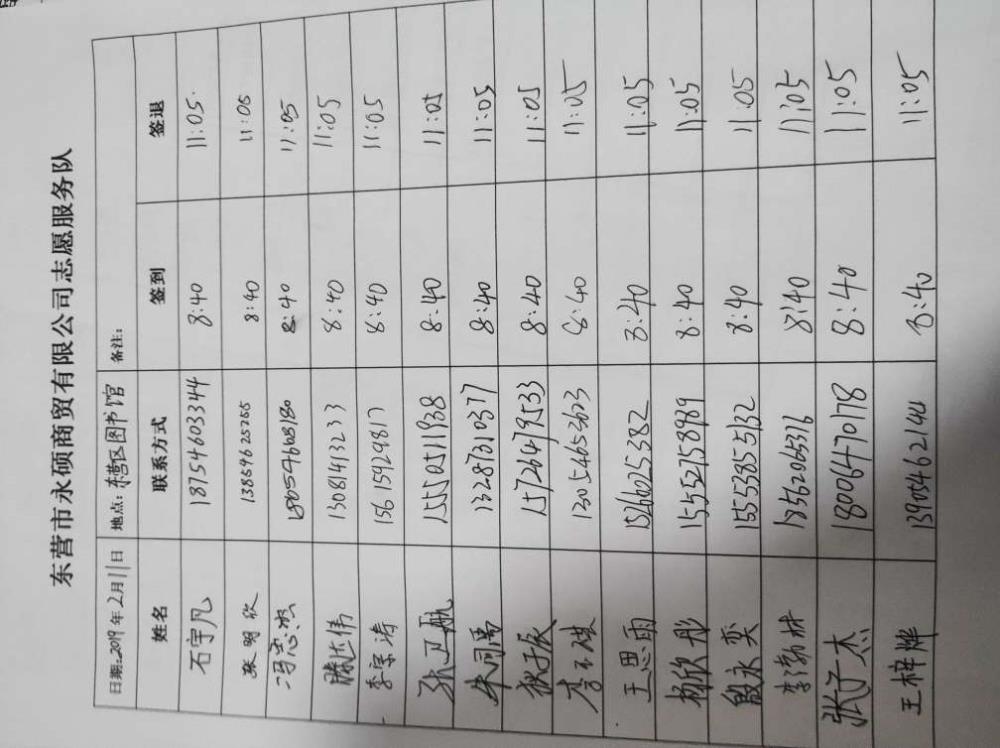 东营市永硕商贸有限公司志愿服务队
日期:2019年2月11日 地点:东营区图书馆 备注:
姓名 联系方式 签到 签退
石宇凡 18754603344 8:40 11:05
张明欣 13864625255 8:40 11:05
冯宪杰 18054668180 8:40 11:05
滕达伟 13081413233 8:40 11:05
李宗涛 15615929817 8:40 11:05
张卫航 15550251938 8:40 11:05
朱同禹 13287310377 8:40 11:05
狄于辰 15726479533 8:40 11:05
李玉琪 13054653623 8:40 11:05
王思雨 15266025382 8:40 11:05
杨欣彤 15552758989 8:40 11:05
殷永奕 15553855132 8:40 11:05
李渤林 18562065376 8:40 11:05
张子杰 18006470178 8:40 11:05
王梓烨 8:40 11:05